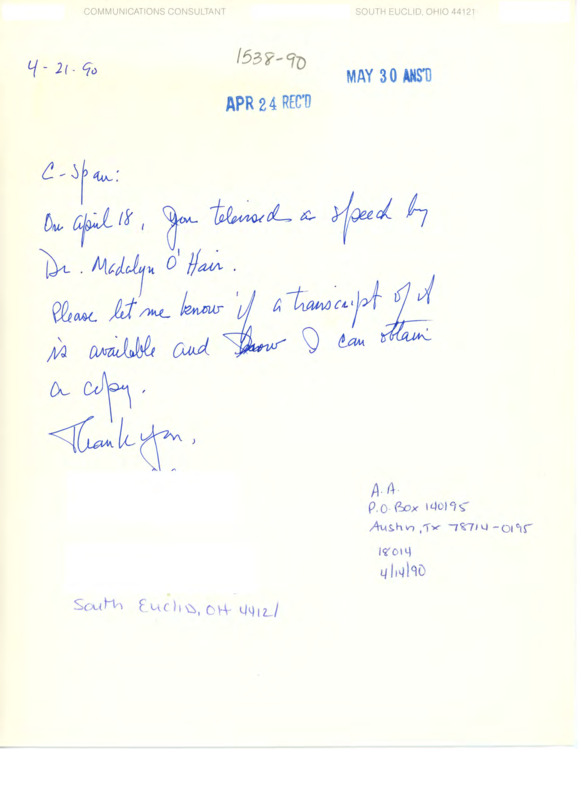 COMMUNICATIONS CONSULTANT SOUTH EUCLID, OHIO 44121
4-21-90
1538-90
MAY 30 ANS'D
APR 24 REC'D
C-Span:
On April 18, you televised a speech by
Dr. Madalyn O'Hair.
Please let me know if a transcript of it
is available and how I can obtain
a copy.
Thank you,
A.A.
P.O. Box 140195
Austin, TX 78714-0195
18014
4/14/90
South Euclid, OH 44121